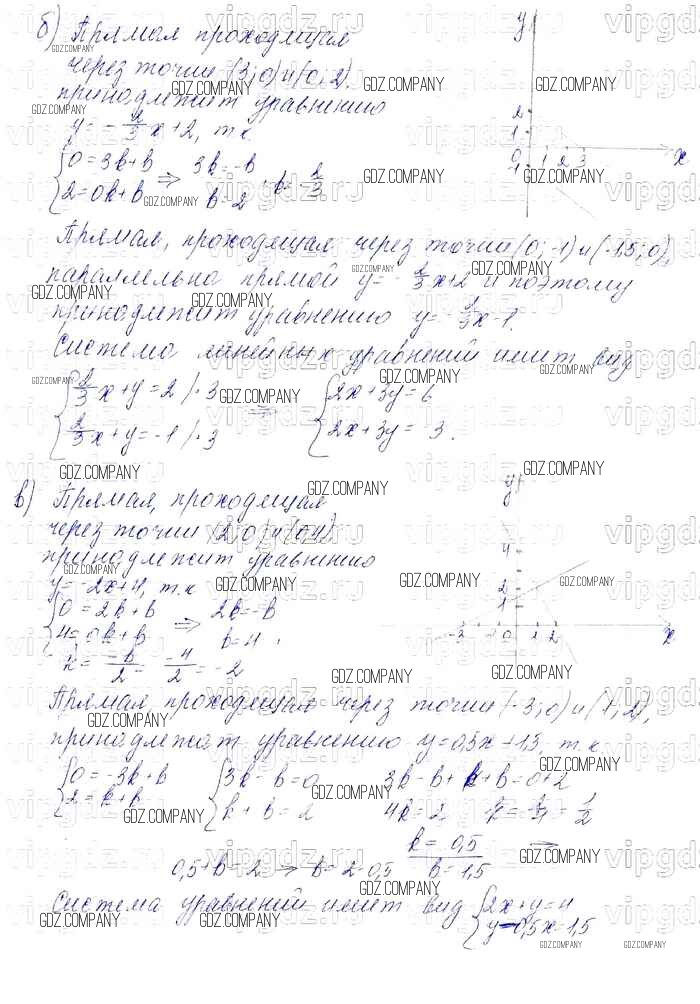 б) Прямая проходящая
через точки (3; 0) и (0; 2),
принадлежит уравнению
y = -2/3 x + 2, т.к.
{0 = 3k + b ⇒ 3k = -b k = -2/3
{2 = 0k + b b = 2
y
2
1
0 1 2 3 x
-1
Прямая, проходящая через точки (0; -1) и (-1,5; 0),
параллельна прямой y = -2/3 x + 2 и поэтому
принадлежит уравнению y = -2/3 x - 1.
Система линейных уравнений имеет вид
{2/3 x + y = 2 /·3 ⇒ {2x + 3y = 6
{2/3 x + y = -1 /·3 {2x + 3y = -3.
в) Прямая, проходящая
через точки (2; 0) и (0; 4)
принадлежит уравнению
y = -2x + 4, т.к
{0 = 2k + b ⇒ 2k = -b
{4 = 0k + b b = 4
k = -b/2 = -4/2 = -2
y
4
2
1
-3 -1 0 1 2 x
Прямая, проходящая через точки (-3; 0) и (1; 2),
принадлежит уравнению y = 0,5x + 1,5, т.к
{0 = -3k + b {3k - b = 0 3k - b + k + b = 0 + 2
{2 = k + b {k + b = 2 4k = 2 k = 2/4 = 1/2
k = 0,5 ⇒
0,5 + b = 2 ⇒ b = 2 - 0,5 b = 1,5
Система уравнений имеет вид {2x + y = 4
{y - 0,5x = 1,5
GDZ.COMPANY
vipgdz.ru